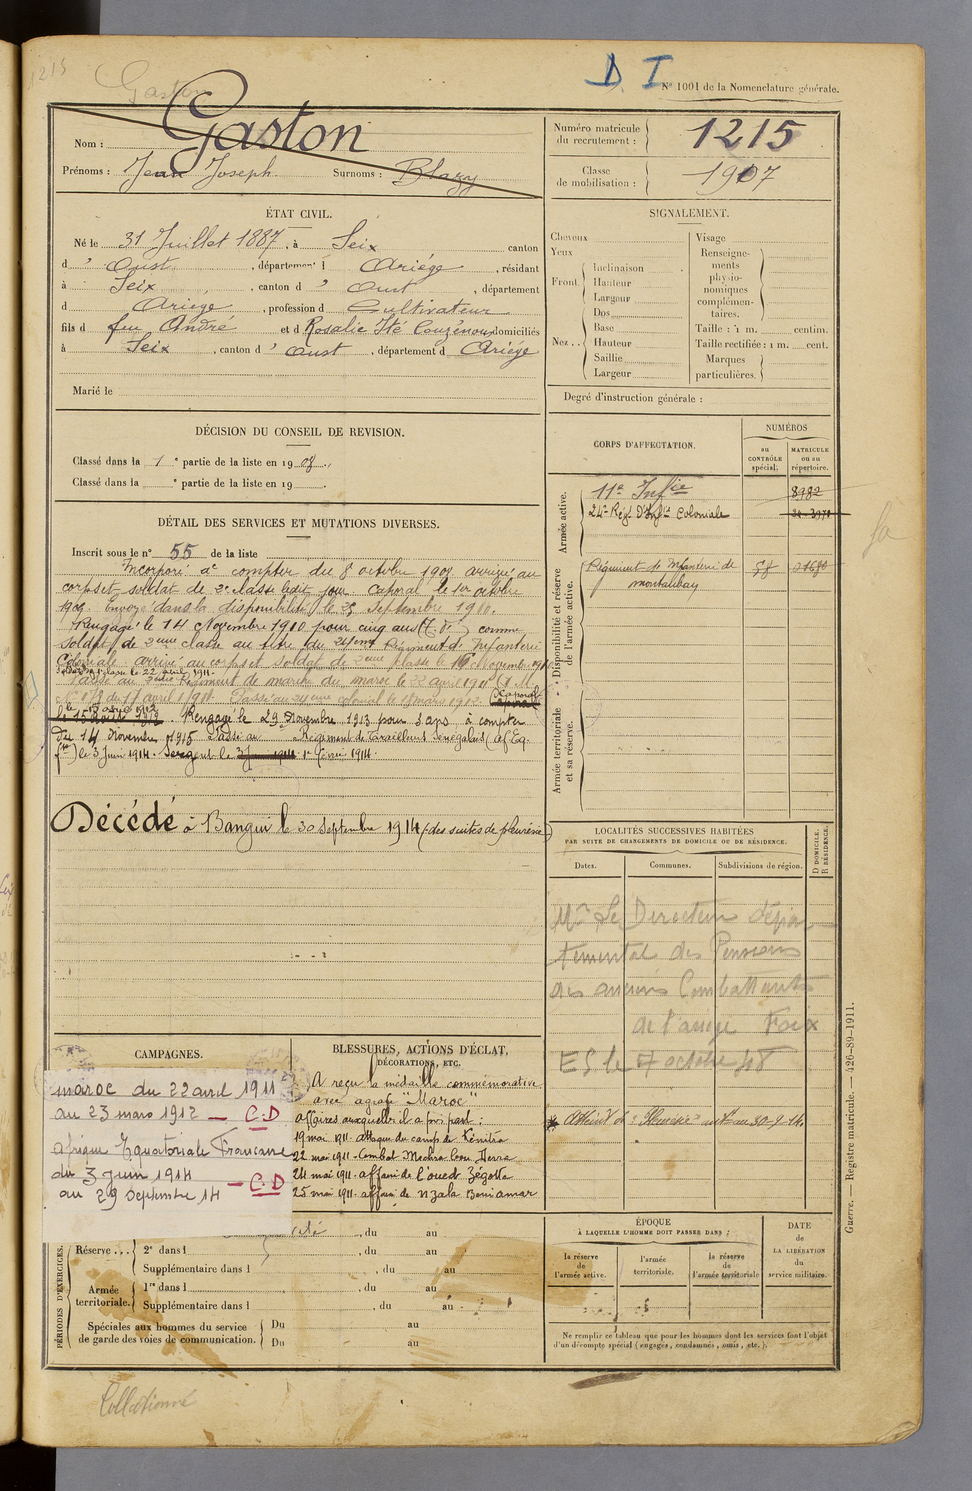 1215
Gaston
D. I
N° 1001 de la Nomenclature générale.
Nom : Gaston
Prénoms : Jean Joseph. Surnoms : Blazy
Numéro matricule du recrutement : 1215
Classe de mobilisation : 1907
ÉTAT CIVIL.
Né le 31 Juillet 1887, à Seix canton
d' Oust, département d Ariége, résidant
à Seix, canton d' Oust, département
d Ariège, profession d Cultivateur
fils d feu André et d Rosalie domiciliés
à Seix, canton d' Oust, département d Ariége
Marié le
SIGNALEMENT.
Cheveux
Yeux
Front.
Inclinaison
Hauteur
Largeur
Nez..
Dos
Base
Hauteur
Saillie
Largeur
Visage
Renseignements physionomiques complémentaires.
Taille : 1 m. centim.
Taille rectifiée : 1 m. cent.
Marques particulières.
Degré d'instruction générale :
DÉCISION DU CONSEIL DE REVISION.
Classé dans la 1e partie de la liste en 1908.
Classé dans la e partie de la liste en 19 .
DÉTAIL DES SERVICES ET MUTATIONS DIVERSES.
Inscrit sous le n° 55 de la liste
Incorporé à compter du 8 octobre 1908 arrivé au
corps et soldat de 2e classe ledit jour. Caporal le 1er octobre
1909. Envoyé dans la disponibilité le 25 Septembre 1910.
Rengagé le 14 Novembre 1910 pour cinq ans comme
soldat de 2eme classe au titre du 24eme Régiment d'Infanterie
Coloniale arrivé au corps et soldat de 2eme classe le 16 Novembre 1910
classe le 22 avril 1911.
Passé au Régiment de marche du maroc le 22 avril 1911
du 17 avril 1911. Passé au 24eme colonial le mars 1912. Caporal
le 15 août 1912
le 15 Août 1912. Rengagé le 29 Novembre 1913 pour 3 ans à compter
du 14 Novembre 1915 Passé au Régiment de Tirailleurs Sénégalais (Af. Eq.
fse) le 3 Juin 1914. Sergent le 3 Juin 1914 1er février 1914
Décédé à Bangui le 30 Septembre 1914 (des suites de pleurésie)
CORPS D'AFFECTATION.
NUMÉROS
au CONTRÔLE spécial;
MATRICULE ou au répertoire.
Armée active.
11e Infie 8982
24e Régt D'Infie Coloniale
Disponibilité et réserve de l'armée active.
Régiment d'Infanterie de
montauban
Armée territoriale et sa réserve.
LOCALITÉS SUCCESSIVES HABITÉES
PAR SUITE DE CHANGEMENTS DE DOMICILE OU DE RÉSIDENCE.
D DOMICILE,
R RÉSIDENCE.
Dates. Communes. Subdivisions de région.
Mr Le Directeur dépar
temental des Pensions
des anciens Combattants
de l'ariege Foix
ES le 7 octobre 48
CAMPAGNES.
maroc du 22 avril 1911
au 23 mars 1912 — C.D
afrique Equatoriale Francaise
du 3 Juin 1914
au 29 Septembre 14 — C.D
BLESSURES, ACTIONS D'ÉCLAT,
DÉCORATIONS, ETC.
A reçu la médaille commémorative
avec agrafe "Maroc"
affaires auxquelles il a pris part :
19 mai 1911 attaque du camp de Kénitra
22 mai 1911 Combat Mechra
24 mai 1911 affaire de l'oued Zégotta
25 mai 1911 affaire de Nzala Beni amar
PÉRIODES D'EXERCICES.
, du au
Réserve... 2e dans l , du au
Supplémentaire dans l , du au
Armée territoriale.
1re dans l , du au
Supplémentaire dans l , du au
Spéciales aux hommes du service
de garde des voies de communication.
Du au
Du au
ÉPOQUE
À LAQUELLE L'HOMME DOIT PASSER DANS :
la réserve de l'armée active.
l'armée territoriale.
la réserve de l'armée territoriale
DATE
DE
LA LIBÉRATION
du
service militaire.
Ne remplir ce tableau que pour les hommes dont les services font l'objet
d'un décompte spécial (engagés, condamnés, omis, etc.).
Guerre. — Registre matricule. — 426-89-1911.
Collationné